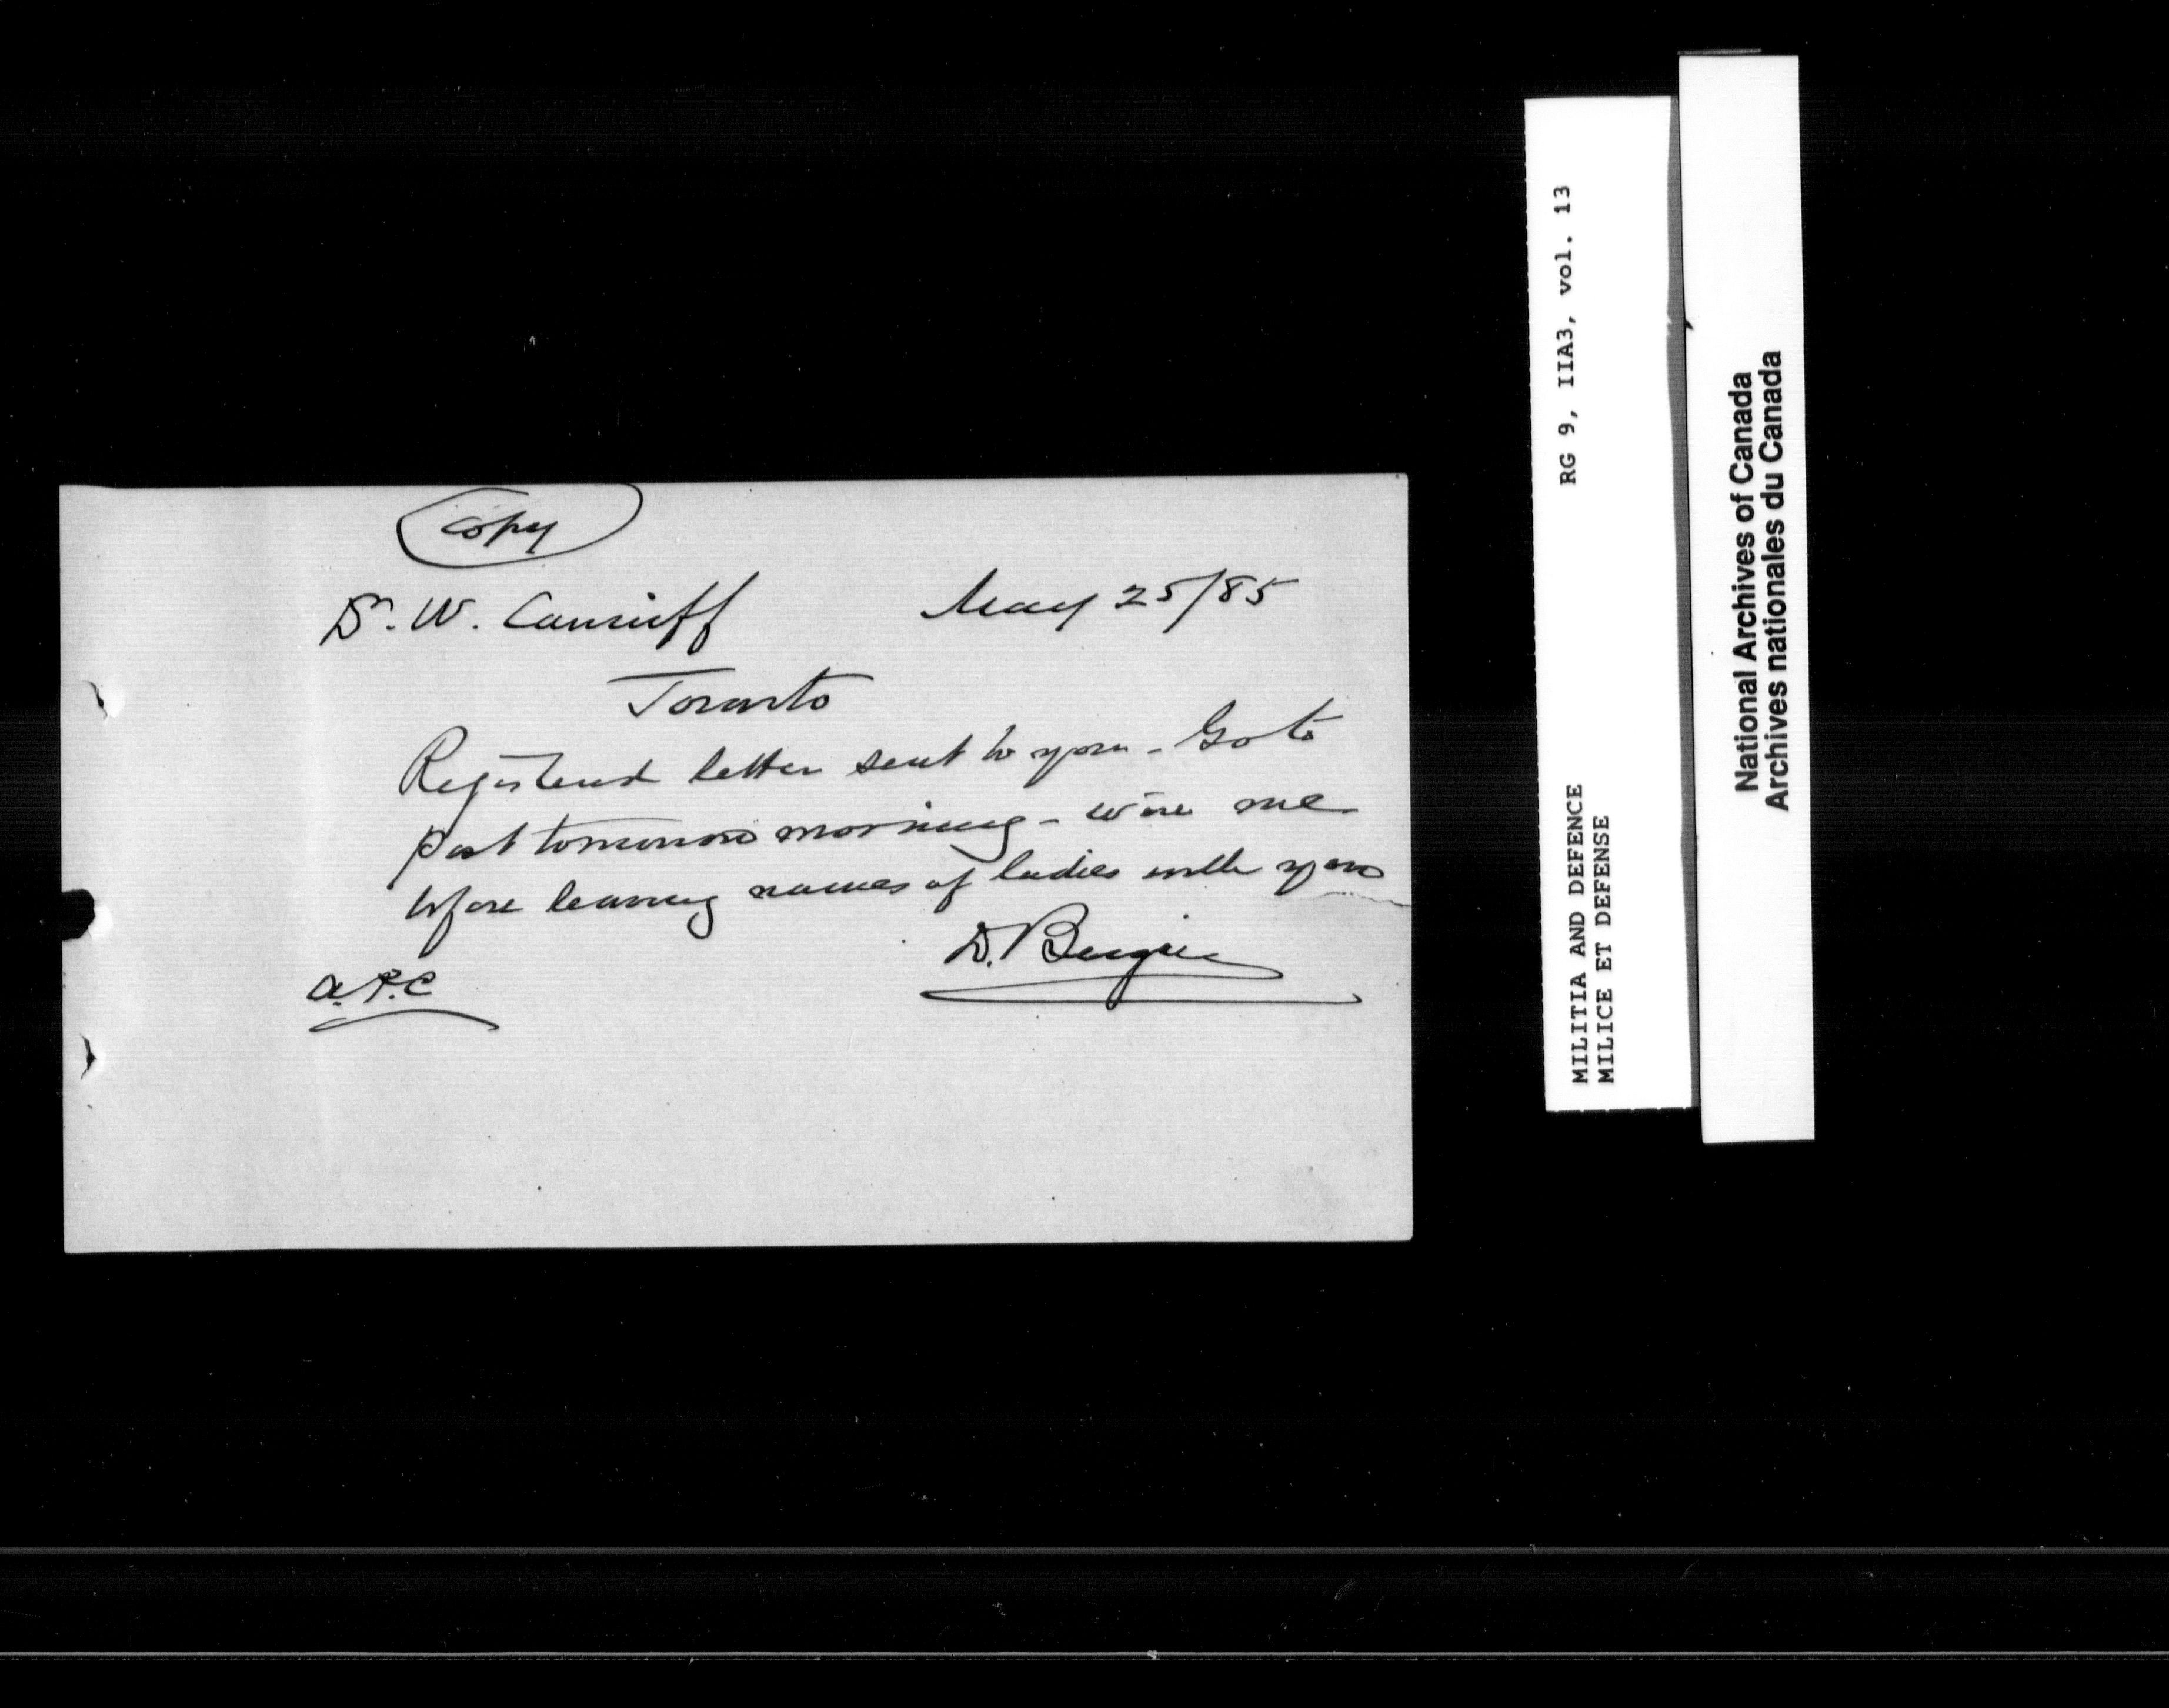 Copy
Dr. W. Canniff
May 25/85
Toronto
Registered letter sent to you - Go to
post tomorrow morning - wire me
before leaving names of ladies with you
D. Bergin
A.P.C
RG 9, IIA3, vol. 13
MILITIA AND DEFENCE
MILICE ET DEFENSE
National Archives of Canada
Archives nationales du Canada